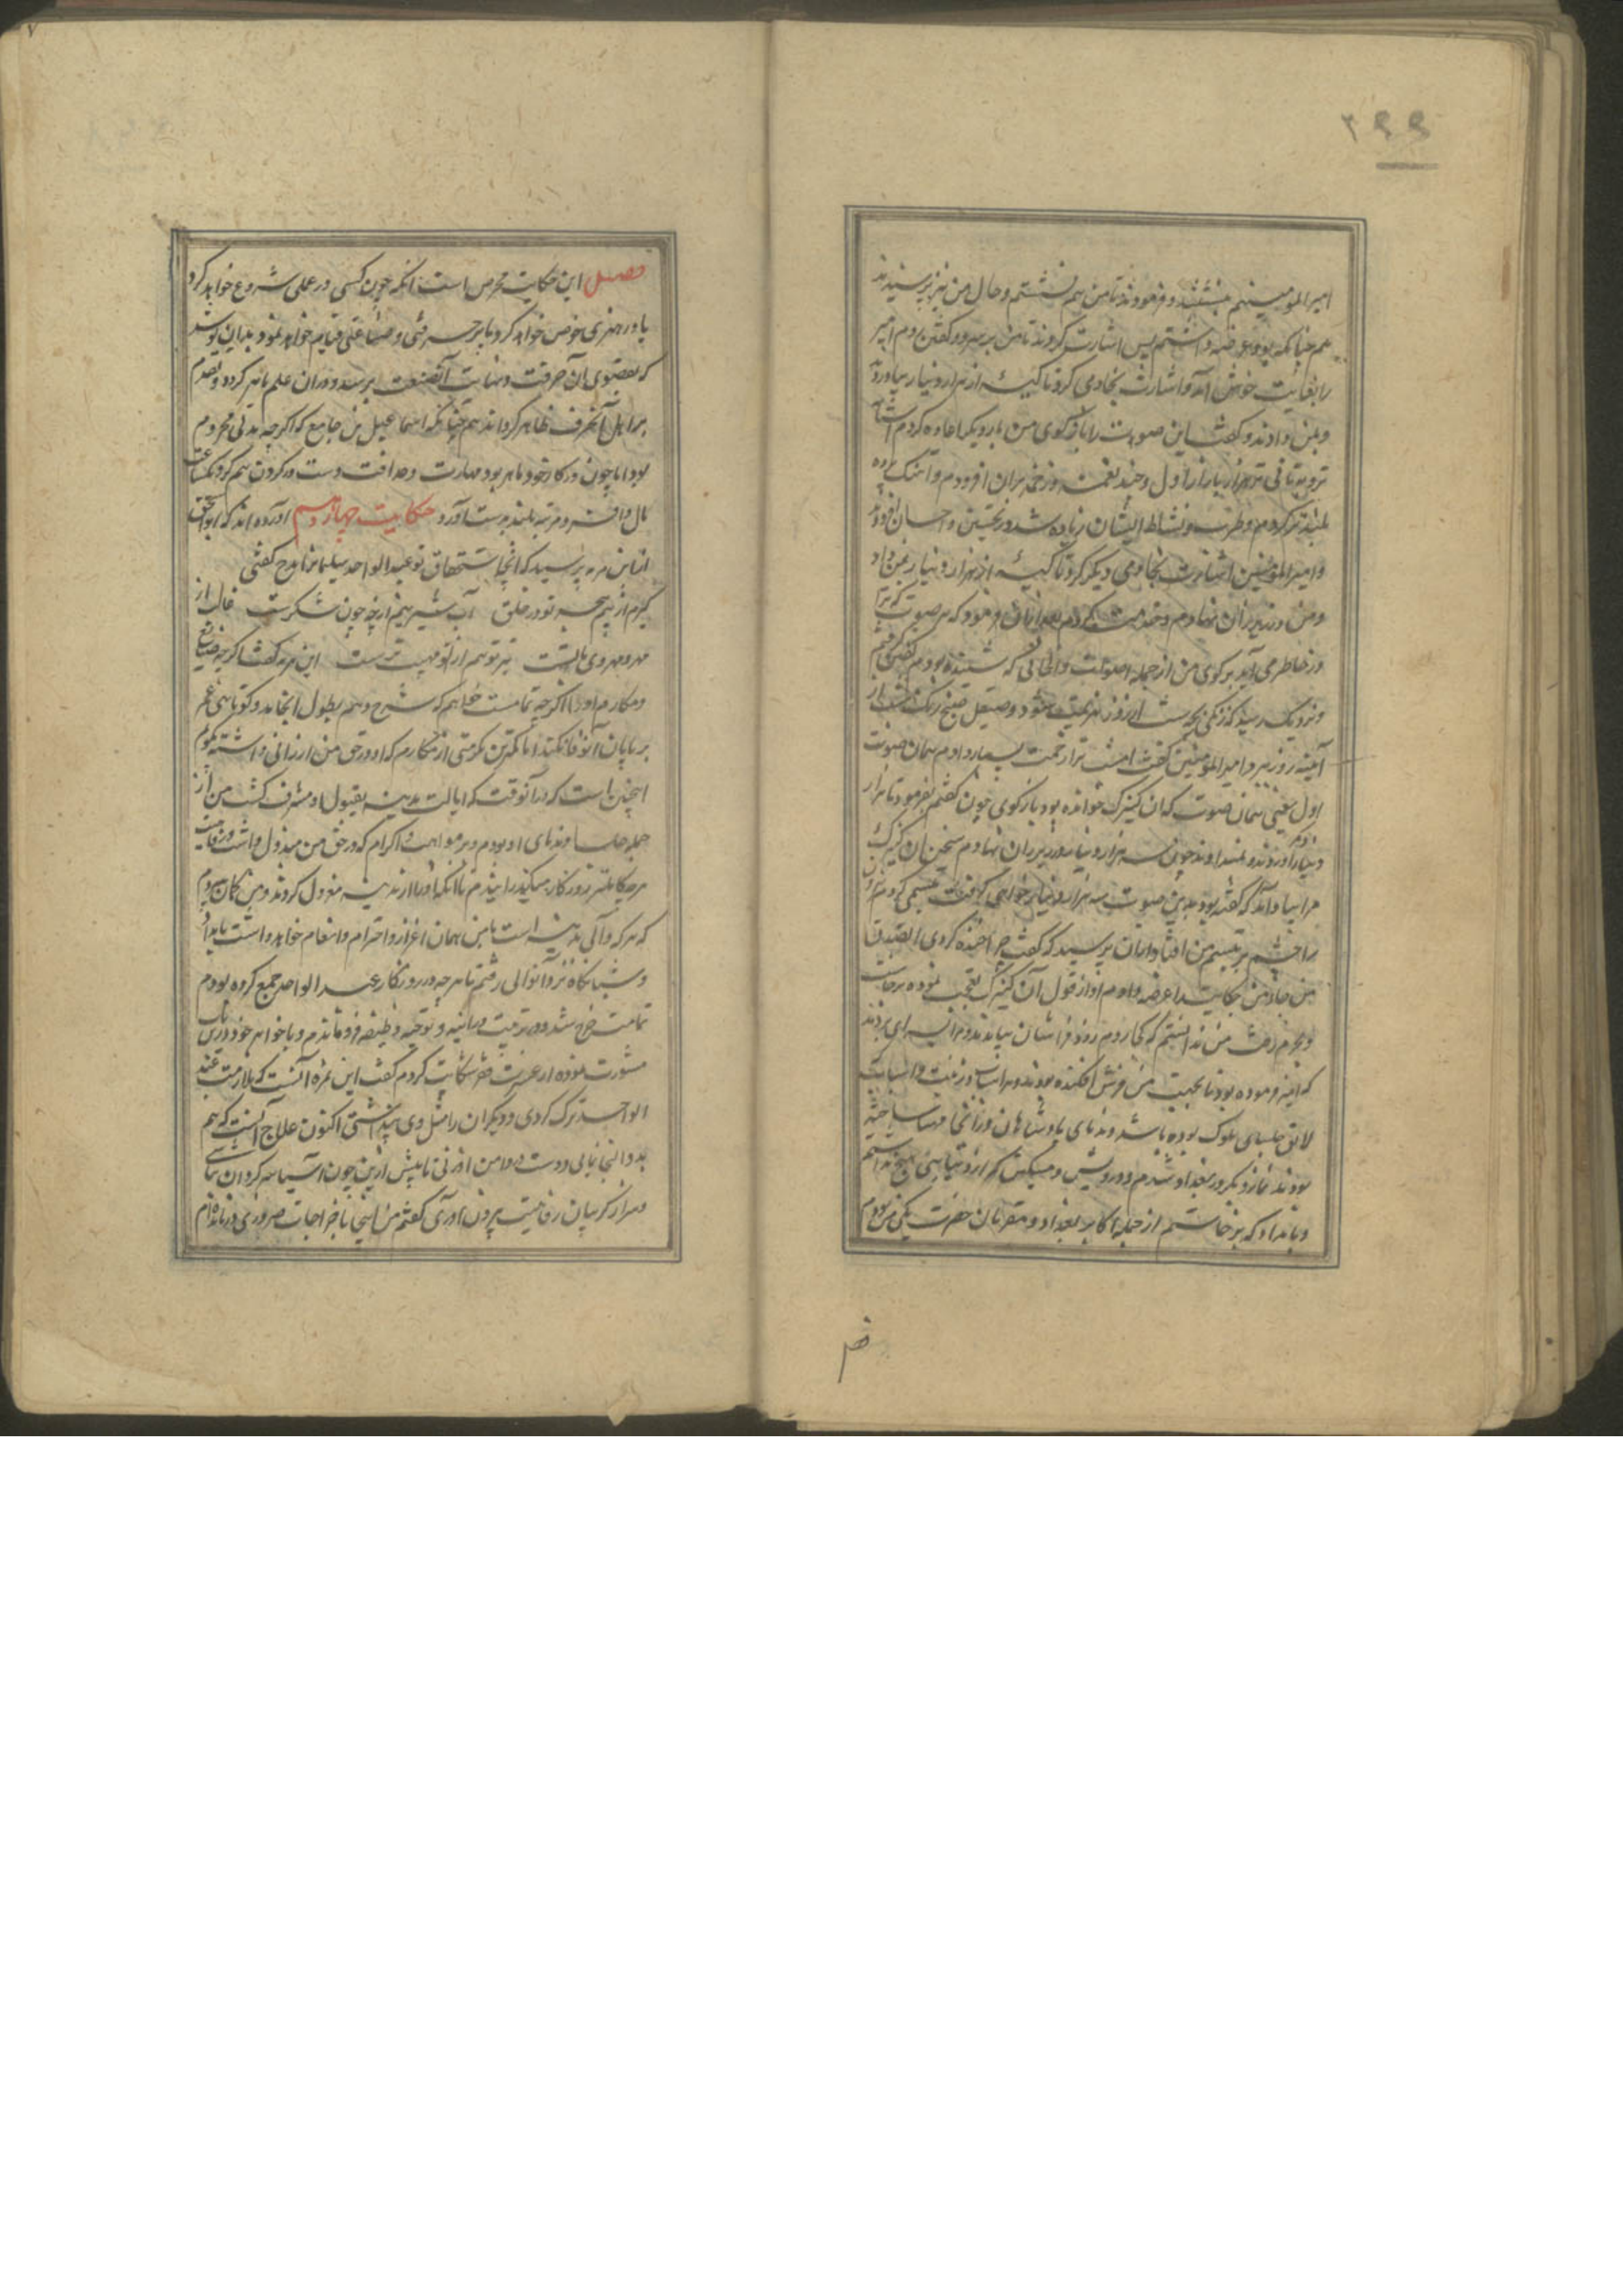 ۲۹۹
امیر المومنینم بنشستند و فرمودند تا من هم نشستم و حال من نیز پرسیدند
هم چنانکه بود عرضه داشتم پس اشارت کردند تا من بر سرود گفتن بودم امیر
را بغایت خوش آمد و اشارت بخادمی کرد تا کیسه از هزار دینار بیاورد
و بمن دادند و گفت این صوت را باز کوی من بار دیگر اعاده کردم
تر و بدقایق تر هزار بار از اول و چند نغمه و زخمه بران افزودم و آهنگ
بلند تر کردم و طرب و نشاط ایشان زیاده شد و تحسین و احسان افزود
و امیر المومنین اشارت بخادمی دیگر کرد تا کیسه از هزار دینار بمن داد
و من در زیر ران نهادم و خدمت کردم بعد ازان فرمود که هر صوت که ترا
در خاطر می آید بر کوی من از جمله اصوات و الحانی که شنیده بودم
و نزدیک رسید که زنگی شب از روز هزیمت شود و صیقل صبح زنگ شب از
آینه روز ببرد امیر المومنین گفت امشب ترا زحمت بسیار دادم همان صوت
اول یعنی همان صوت که ان کنیزک خوانده بود باز کوی چون گفتم بفرمود تا هزار
دینار آوردند و بمن دادند چون سه هزار دینار در زیر ران نهادم سخن ان کنیزک
مرا بیاد آمد که گفته بود بدین صوت سه هزار دینار خواهی گرفت تبسمی کردم
را چشم بر تبسم من افتاد ازان پرسید که گفت چرا خنده کردی
من جاذمن حکایت را عرضه دادم او از قول آن کنیزک تعجب نموده برخاست
و بحرم رفت من ندانستم که کجا روم زود فراشان بیامدند و مرا بسرای بردند
که امیر فرموده بود تا بجهت من فرش افکنده بودند و اسباب زینت و اثبات
لایق جلسای ملوک بوده باشد و ندمای پادشاهان در انجا مهیا ساخته
بودند نماز دیگر در بغداد شدم و درویش و مسکین که از دنیا هیچ نداشتم
و بامداد که برخاستم از جمله اکابر بغداد و مقربان حضرت یکی من بودم
فصل این حکایت محرص است انکه چون کسی در عملی شروع خواهد کرد
یا در هنری خوض خواهد کرد یا بر حرفتی و صناعتی قیام خواهد نمود بدان کوشد
که بقصوی آن حرفت و نهایت آنصنعت برسد و دران علم ماهر کردد و تقدم
بر اهل آنحرف ظاهر کرداند هم چنانکه اسماعیل بن جامع که اکرچه مدتی محروم
بود اما چون در کار خود ماهر بود مهارت و حذاقت دست در کردن هم کرد و بیکساعت
مال وافر و مرتبه بلند بدست آورد حکایت چهاردهم اورده اند که ابو اسحق
از ابن هرمه پرسید که آنجا استحقاق تو عبد الواحد سلیمانرا مدح گفتی
کزم از بیم هجر تو در حلق آب شیرینم ارچه چون شکرست
مهر و مهر وی بایست نیز تو هم از تو مهیب ترست ابن هرمه گفت اکرچه صنایع
و مکارم او را اکرچه تمامت خواهم که شرح دهم بطول انجامد و کوتاهی عمر
بر پایان آن وفا نکند اما کمترین مکرمتی از مکارم که او در حق من ارزانی داشته بگویم
اینچنین است که در آنوقت که ایالت مدینه بقبول او مشرف کشت من از
جمله جلسا و ندمای او بودم و بر مواهب و اکرام که در حق من مبذول داشت
هر چه تمامتر روزکار میکذرانیدم تا انکه او را از مدینه معزول کردند و من گمان بردم
که هر که والی مدینه است با من همان اعزاز و احترام و انعام خواهد داشت بامداد
و شبانگاه نزد آنوالی رفتم تا هر چه در روزکار عبد الواحد جمع کرده بودم
تمامت خرج شد و در ترتیب وظیفه فرو ماندم و با خواهر خود درین باب
مشورت نموده از عسرت فقر شکایت کردم گفت این ثمره آنست که ملازمت عبد
الواحد ترک کردی و دیکران را مثل وی پنداشتی اکنون علاج آنست که هم
بدو التجا نمایی و دست در دامن او زنی تا پیش ازین چون آسیا سرکردان نباشی
و سر از کریبان رفاهیت بیرون آوری گفتم من اینجا باخراجات ضروری درمانده ام